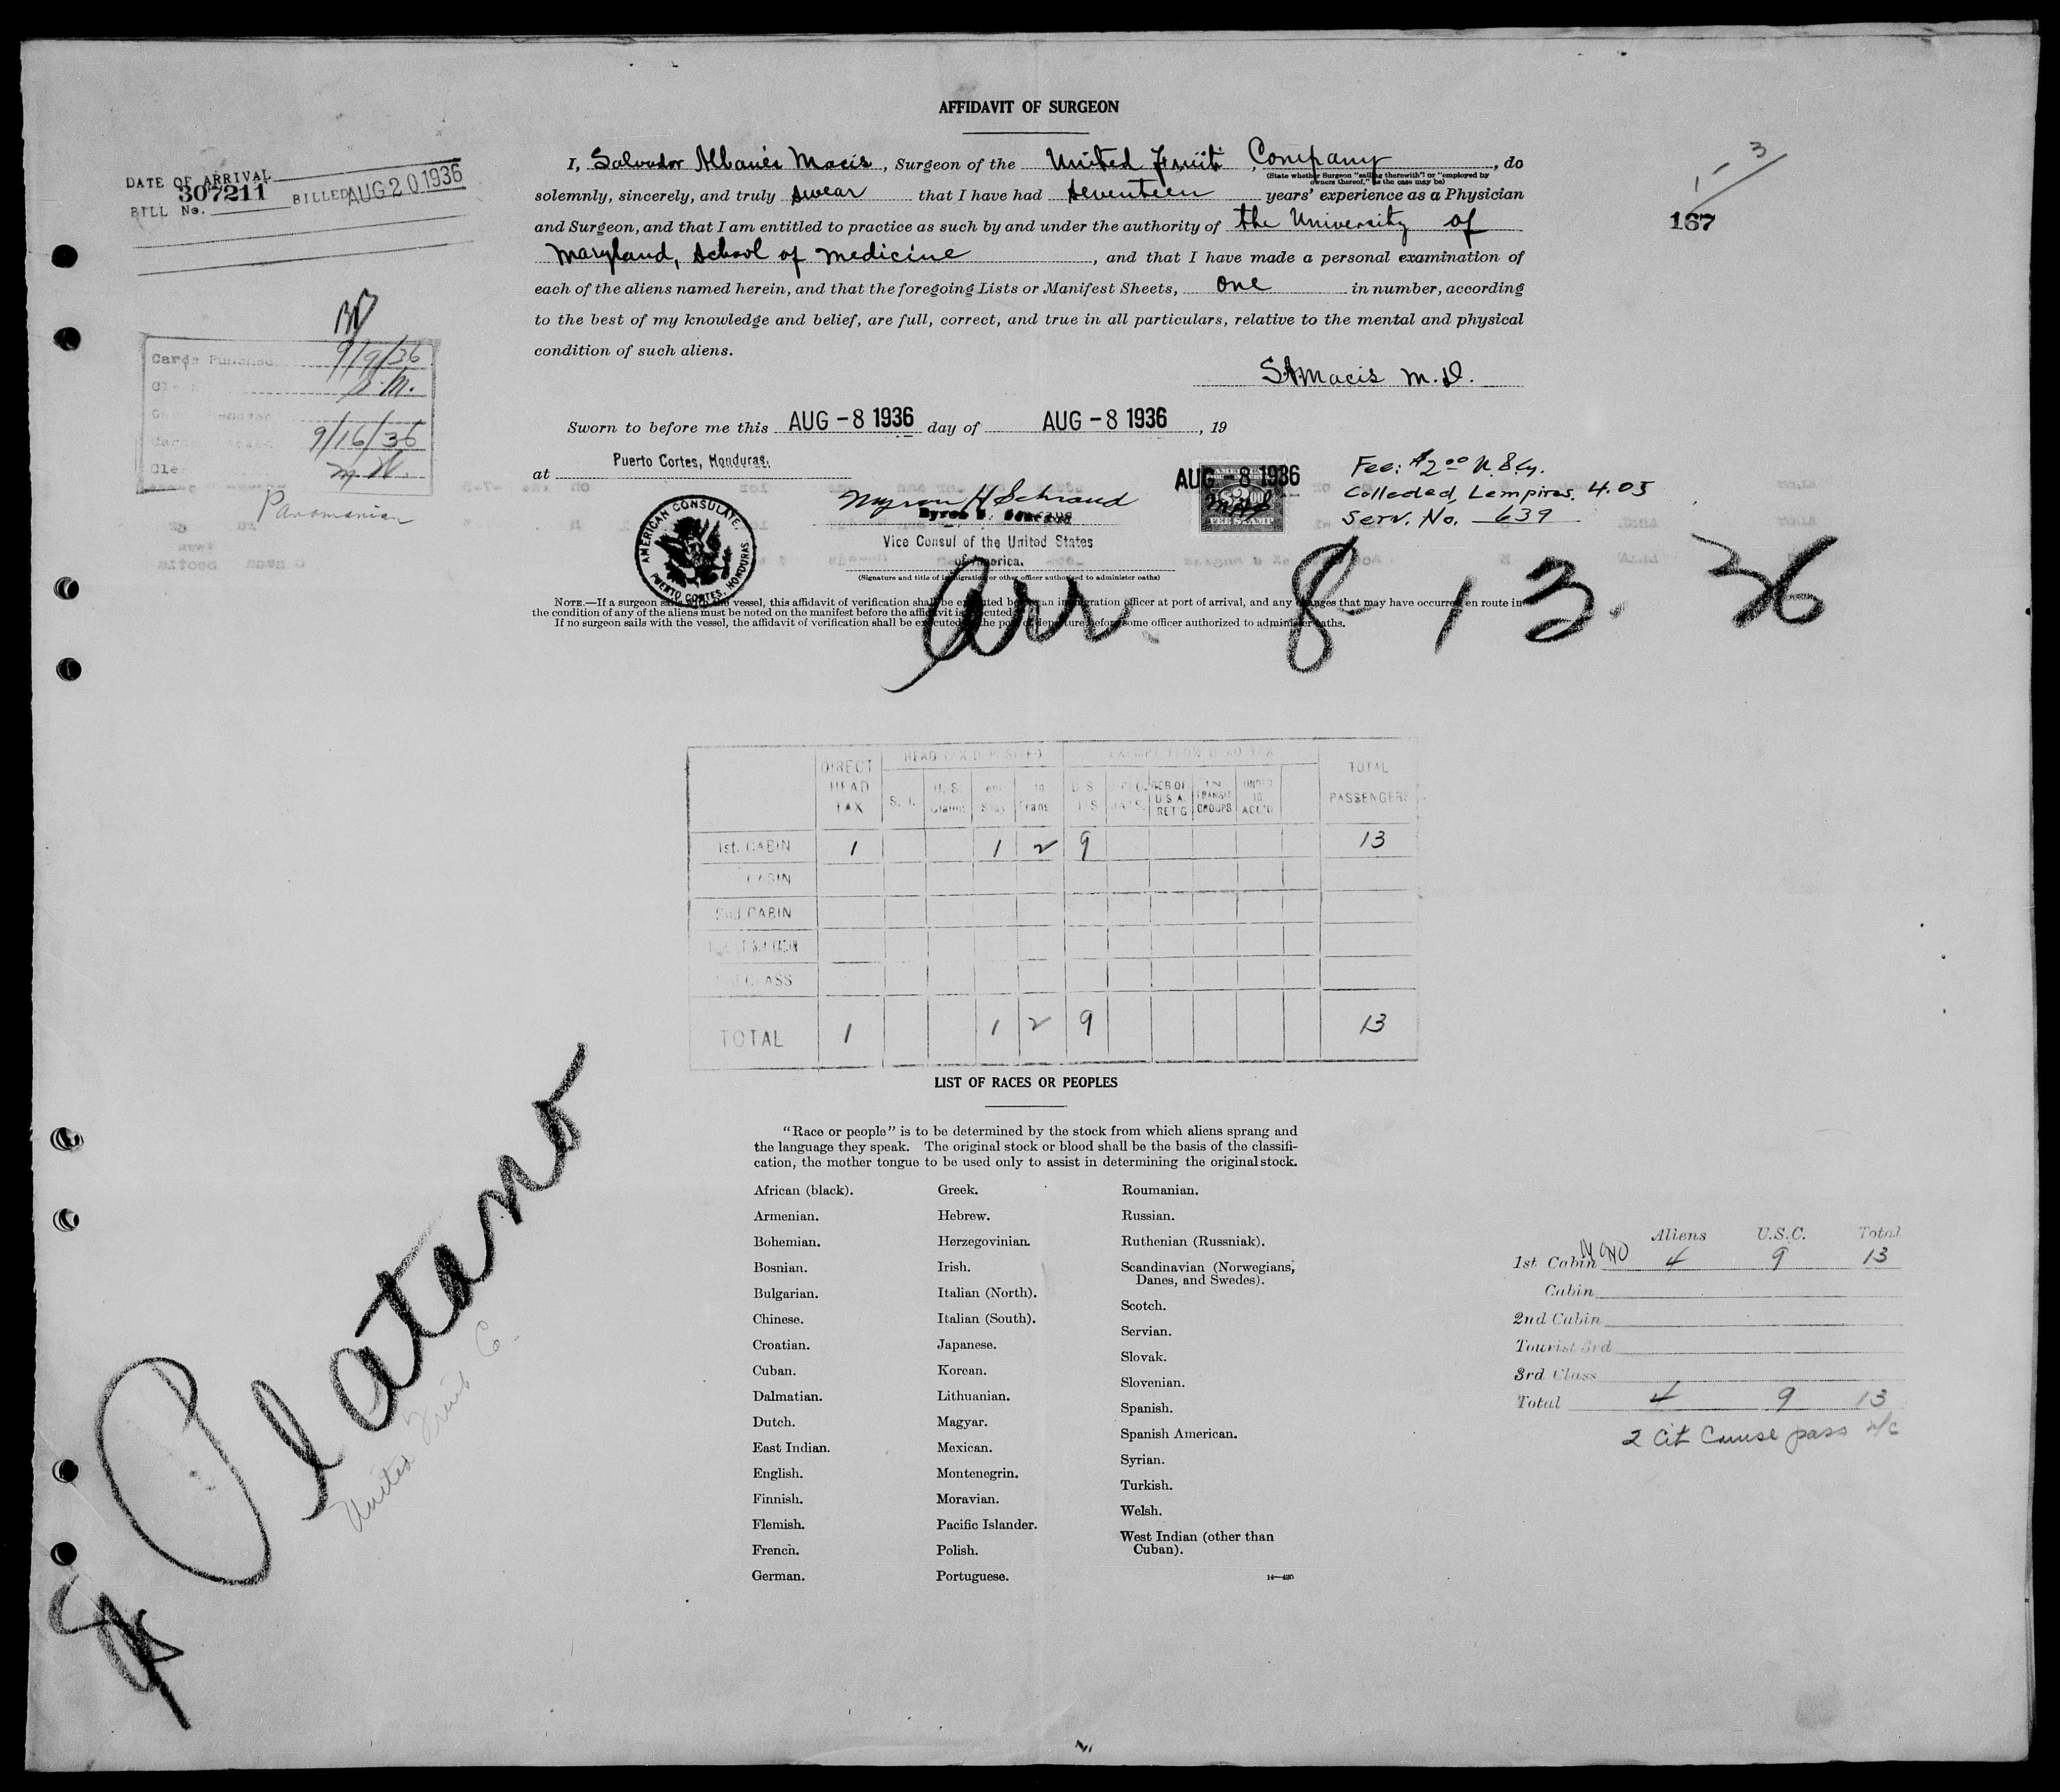 AFFIDAVIT OF SURGEON
I, Salvador Albanés Macis, Surgeon of the United Fruit Company, do
(State whether Surgeon "sailing therewith" or "employed by owners thereof," as the case may be)
solemnly, sincerely, and truly swear that I have had seventeen years' experience as a Physician
and Surgeon, and that I am entitled to practice as such by and under the authority of the University of
Maryland, School of medicine, and that I have made a personal examination of
each of the aliens named herein, and that the foregoing Lists or Manifest Sheets, one in number, according
to the best of my knowledge and belief, are full, correct, and true in all particulars, relative to the mental and physical
condition of such aliens.
S.A. Macis M.D.
Sworn to before me this AUG -8 1936 day of AUG -8 1936, 19
at Puerto Cortes, Honduras.
Myron H Schraud
Vice Consul of the United States
of America.
(Signature and title of immigration or other officer authorized to administer oaths)
AMERICAN CONSULATE.
PUERTO CORTES, HONDURAS.
AUG -8 1936
$2.00
FEE STAMP
Fee: $2.00
Collected, Lempiras. 4.05
Serv. No. 639
NOTE.—If a surgeon sails with the vessel, this affidavit of verification shall be executed before an immigration officer at port of arrival, and any changes that may have occurred en route in
the condition of any of the aliens must be noted on the manifest before the affidavit is executed.
If no surgeon sails with the vessel, the affidavit of verification shall be executed at the port of departure before some officer authorized to administer oaths.
Arr 8-13.36
DATE OF ARRIVAL
307211
BILL No. BILLED AUG 20 1936
3
167
Cards Punched 9/9/36
9/16/36
Panamanian
DIRECT HEAD TAX
HEAD TAX DEPOSITED
EXEMPT FROM HEAD TAX
TOTAL PASSENGERS
U.S. Claim
Trans
RES OF U.S.A. RET'G
IN TRANSIT GROUPS
UNDER 16 ACC'D
1st. CABIN 1 1 2 9 13
CABIN
2nd CABIN
TOTAL 1 1 2 9 13
LIST OF RACES OR PEOPLES
"Race or people" is to be determined by the stock from which aliens sprang and
the language they speak. The original stock or blood shall be the basis of the classifi-
cation, the mother tongue to be used only to assist in determining the original stock.
African (black).
Armenian.
Bohemian.
Bosnian.
Bulgarian.
Chinese.
Croatian.
Cuban.
Dalmatian.
Dutch.
East Indian.
English.
Finnish.
Flemish.
French.
German.
Greek.
Hebrew.
Herzegovinian.
Irish.
Italian (North).
Italian (South).
Japanese.
Korean.
Lithuanian.
Magyar.
Mexican.
Montenegrin.
Moravian.
Pacific Islander.
Polish.
Portuguese.
Roumanian.
Russian.
Ruthenian (Russniak).
Scandinavian (Norwegians,
Danes, and Swedes).
Scotch.
Servian.
Slovak.
Slovenian.
Spanish.
Spanish American.
Syrian.
Turkish.
Welsh.
West Indian (other than
Cuban).
14—430
Platano
United Fruit Co.
Aliens U.S.C. Total
1st Cabin 4 9 13
Cabin
2nd Cabin
Tourist 3rd
3rd Class
Total 4 9 13
2 Cit Cruise pass